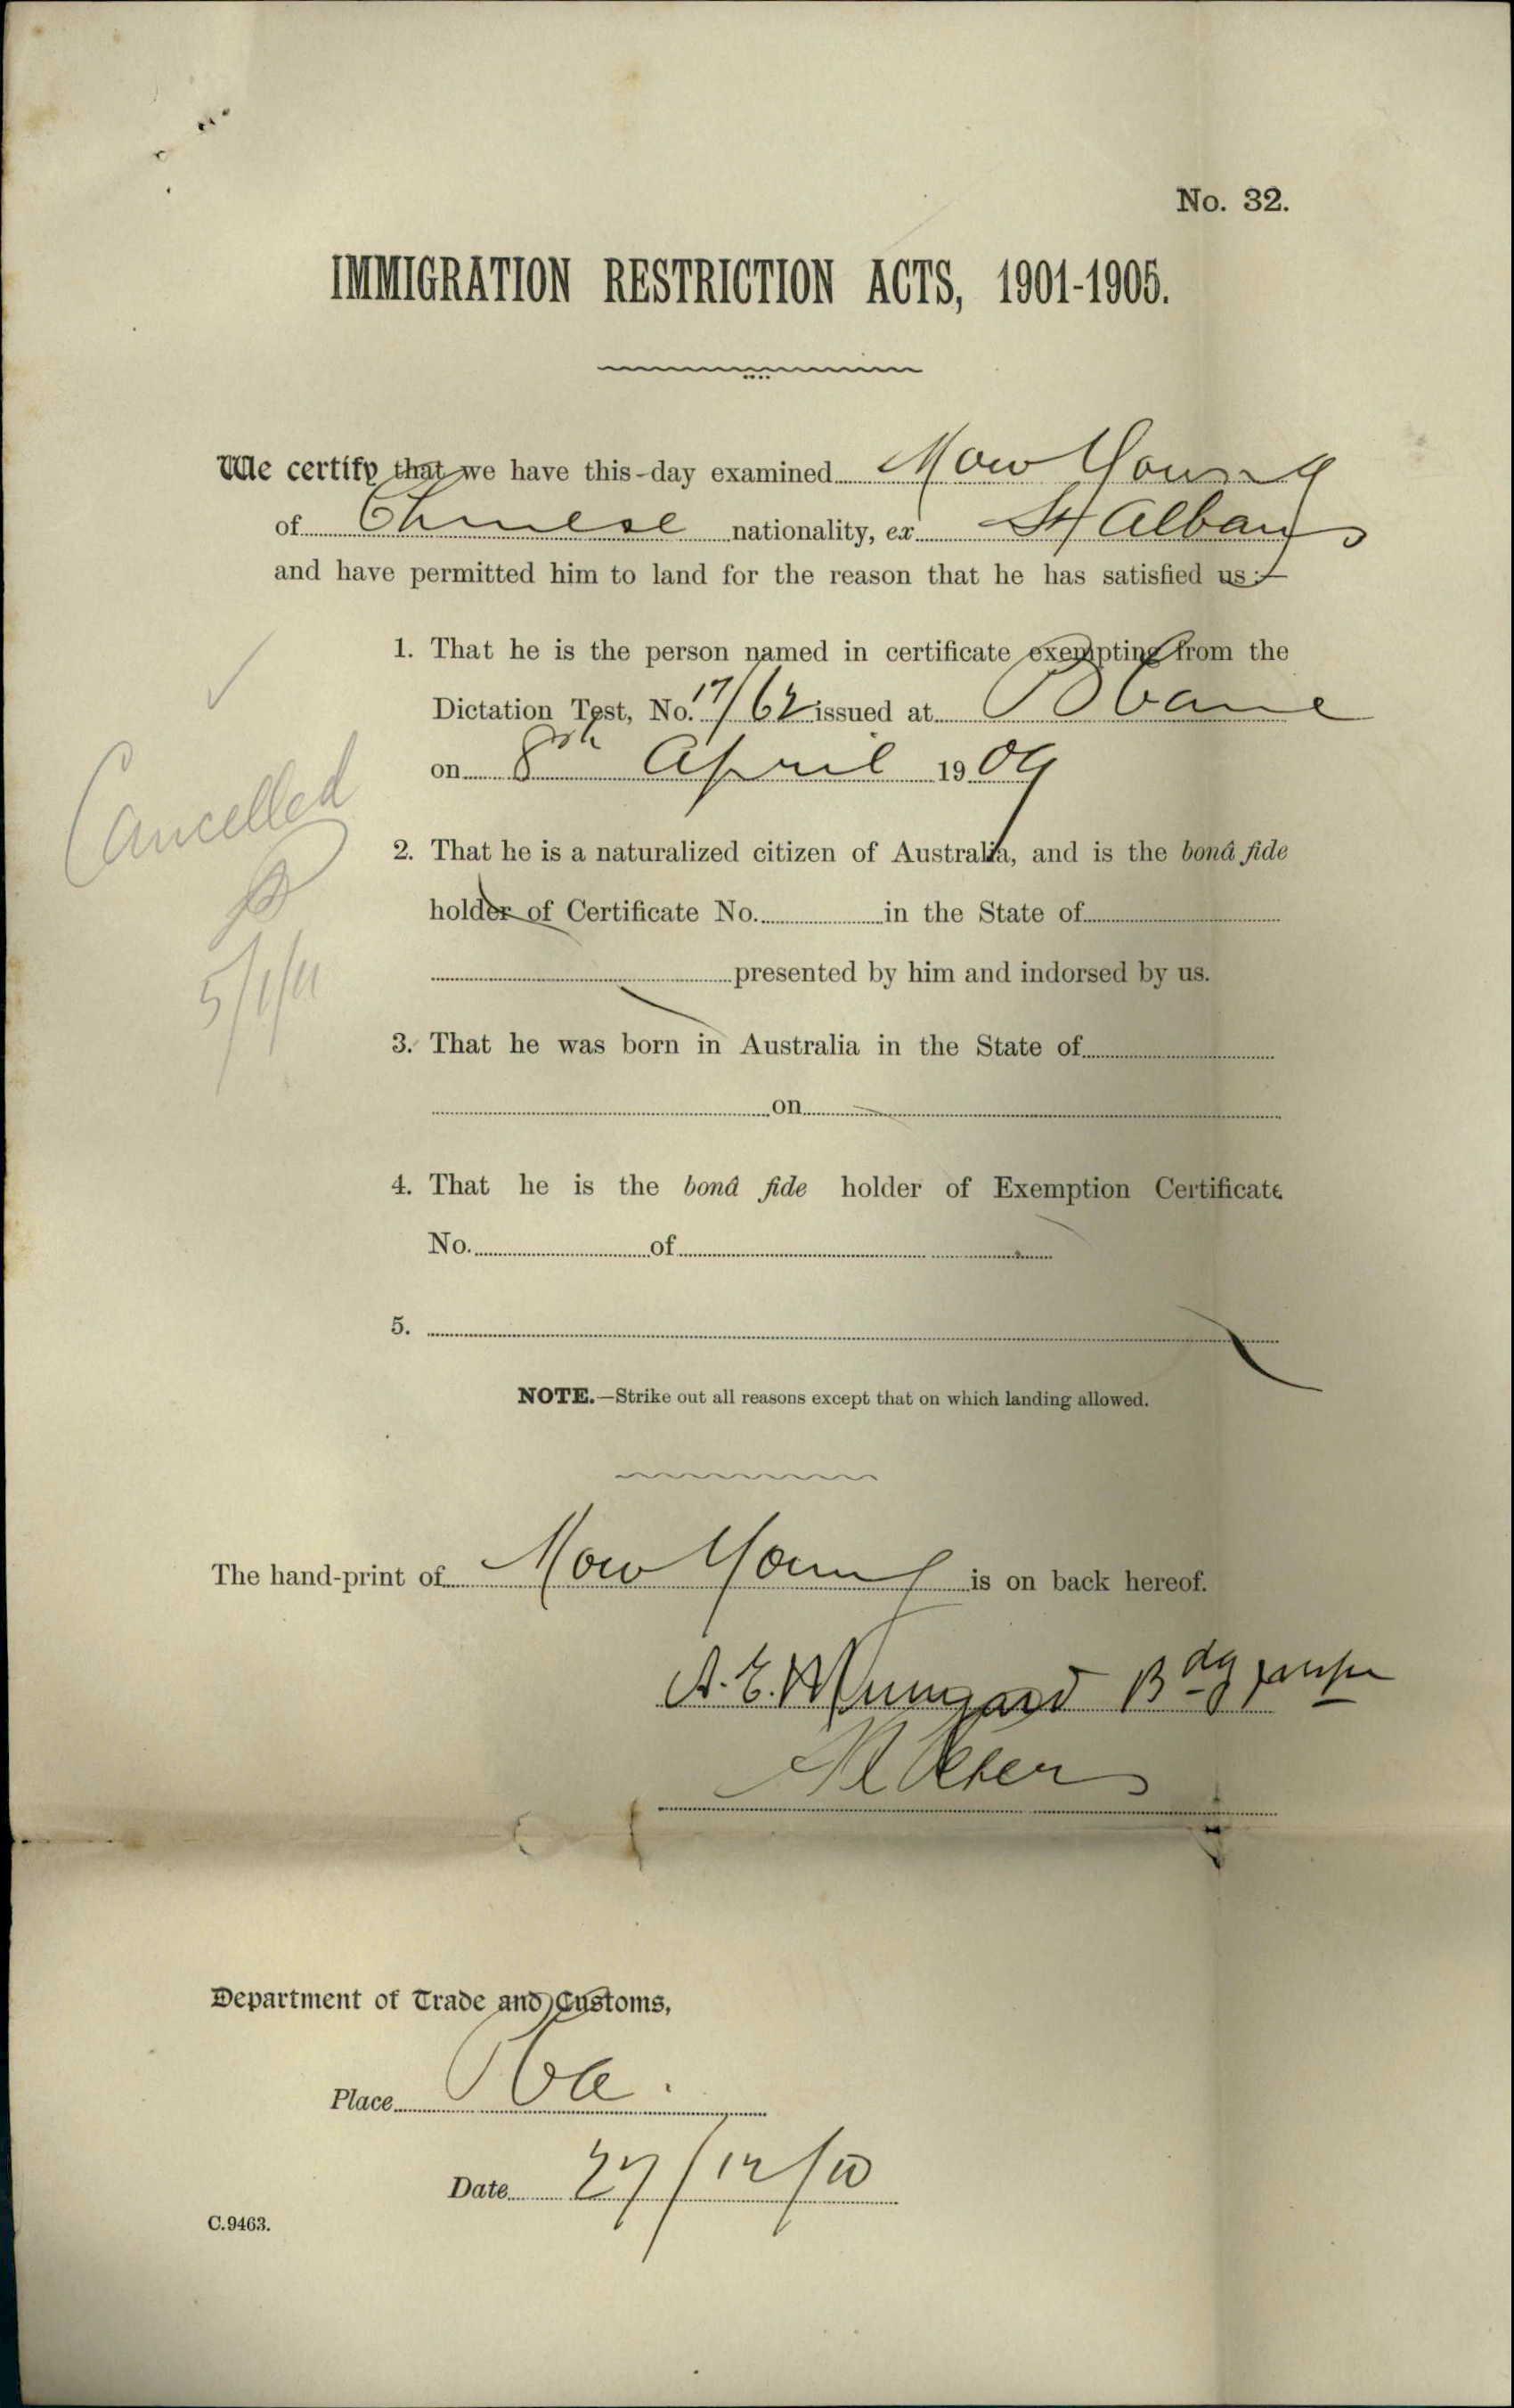 No. 32.
IMMIGRATION RESTRICTION ACTS, 1901-1905.
We certify that we have this day examined Mow Young
of Chinese nationality, ex St Albans
and have permitted him to land for the reason that he has satisfied us:—
1. That he is the person named in certificate exempting from the
Dictation Test, No. 17/62 issued at Bbane
on 8th April 1909
Cancelled
5/1/11
2. That he is a naturalized citizen of Australia, and is the bonâ fide
holder of Certificate No. in the State of
presented by him and indorsed by us.
3. That he was born in Australia in the State of
on
4. That he is the bonâ fide holder of Exemption Certificate
No. of
5.
NOTE.—Strike out all reasons except that on which landing allowed.
The hand-print of Mow Young is on back hereof.
A. E.
Department of Trade and Customs,
Place
Date 27/12/10
C.9463.